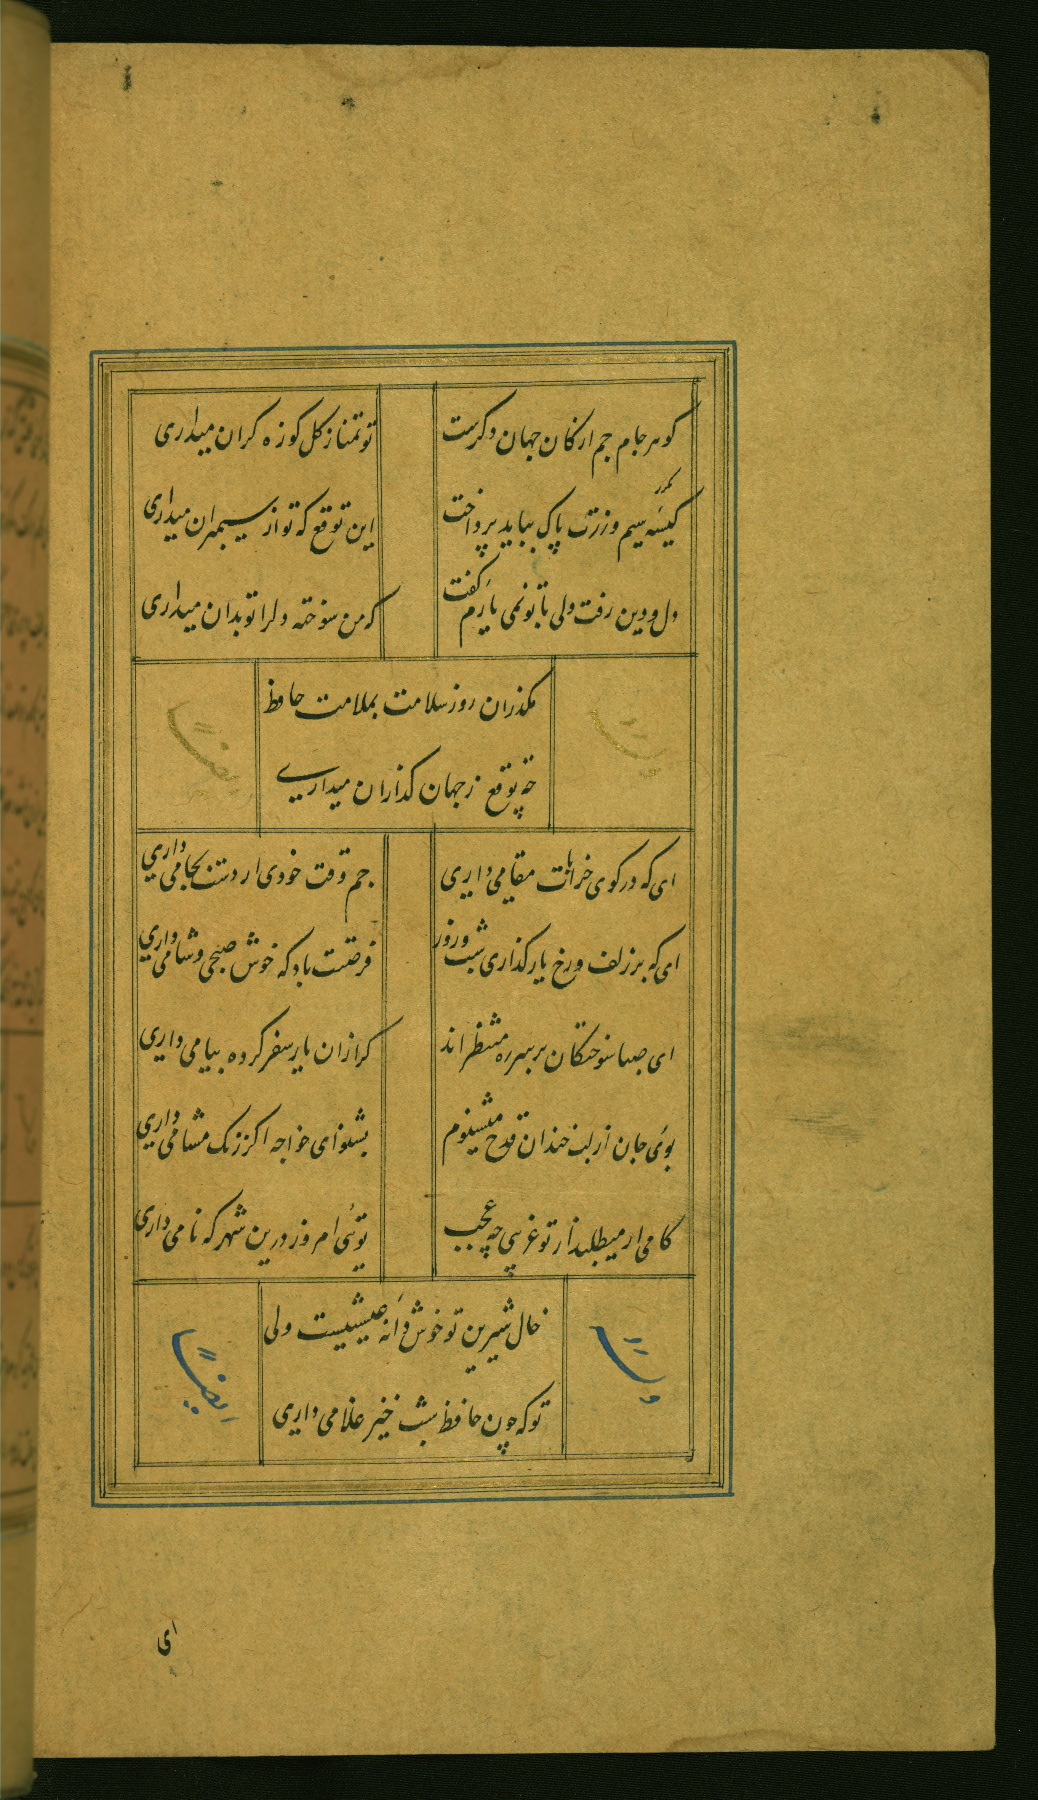 گوهر جام جم از کان جهان دگرست
تو تمنا ز گل کوزه گران میداری
کیسه سیم و زرت پاک بباید پرداخت
این توقع که تو از سیمبران میداری
دل و دین رفت ولی با تو نمی یارم گفت
که من سوخته دل را تو بدان میداری
مگذران روز سلامت بملامت حافظ
چه توقع ز جهان گذران میداری
وله
ایضا
ای که در کوی خرابات مقامی داری
جم وقت خودی ار دست بجامی داری
ای که بر زلف و رخ یار گذاری شب و روز
فرصتت باد که خوش صبحی و شامی داری
ای صبا سوختگان بر سر ره منتظراند
گر ازان یار سفر کرده پیامی داری
بوی جان از لب خندان قدح میشنوم
بشنو ای خواجه اگر زنک مشامی داری
کامی ار میطلبد از تو غریبی چه عجب
توئی امروز درین شهر که نامی داری
خال شیرین تو خوش دانه عیشیست ولی
تو که چون حافظ شب خیز غلامی داری
وله
ایضا
ای